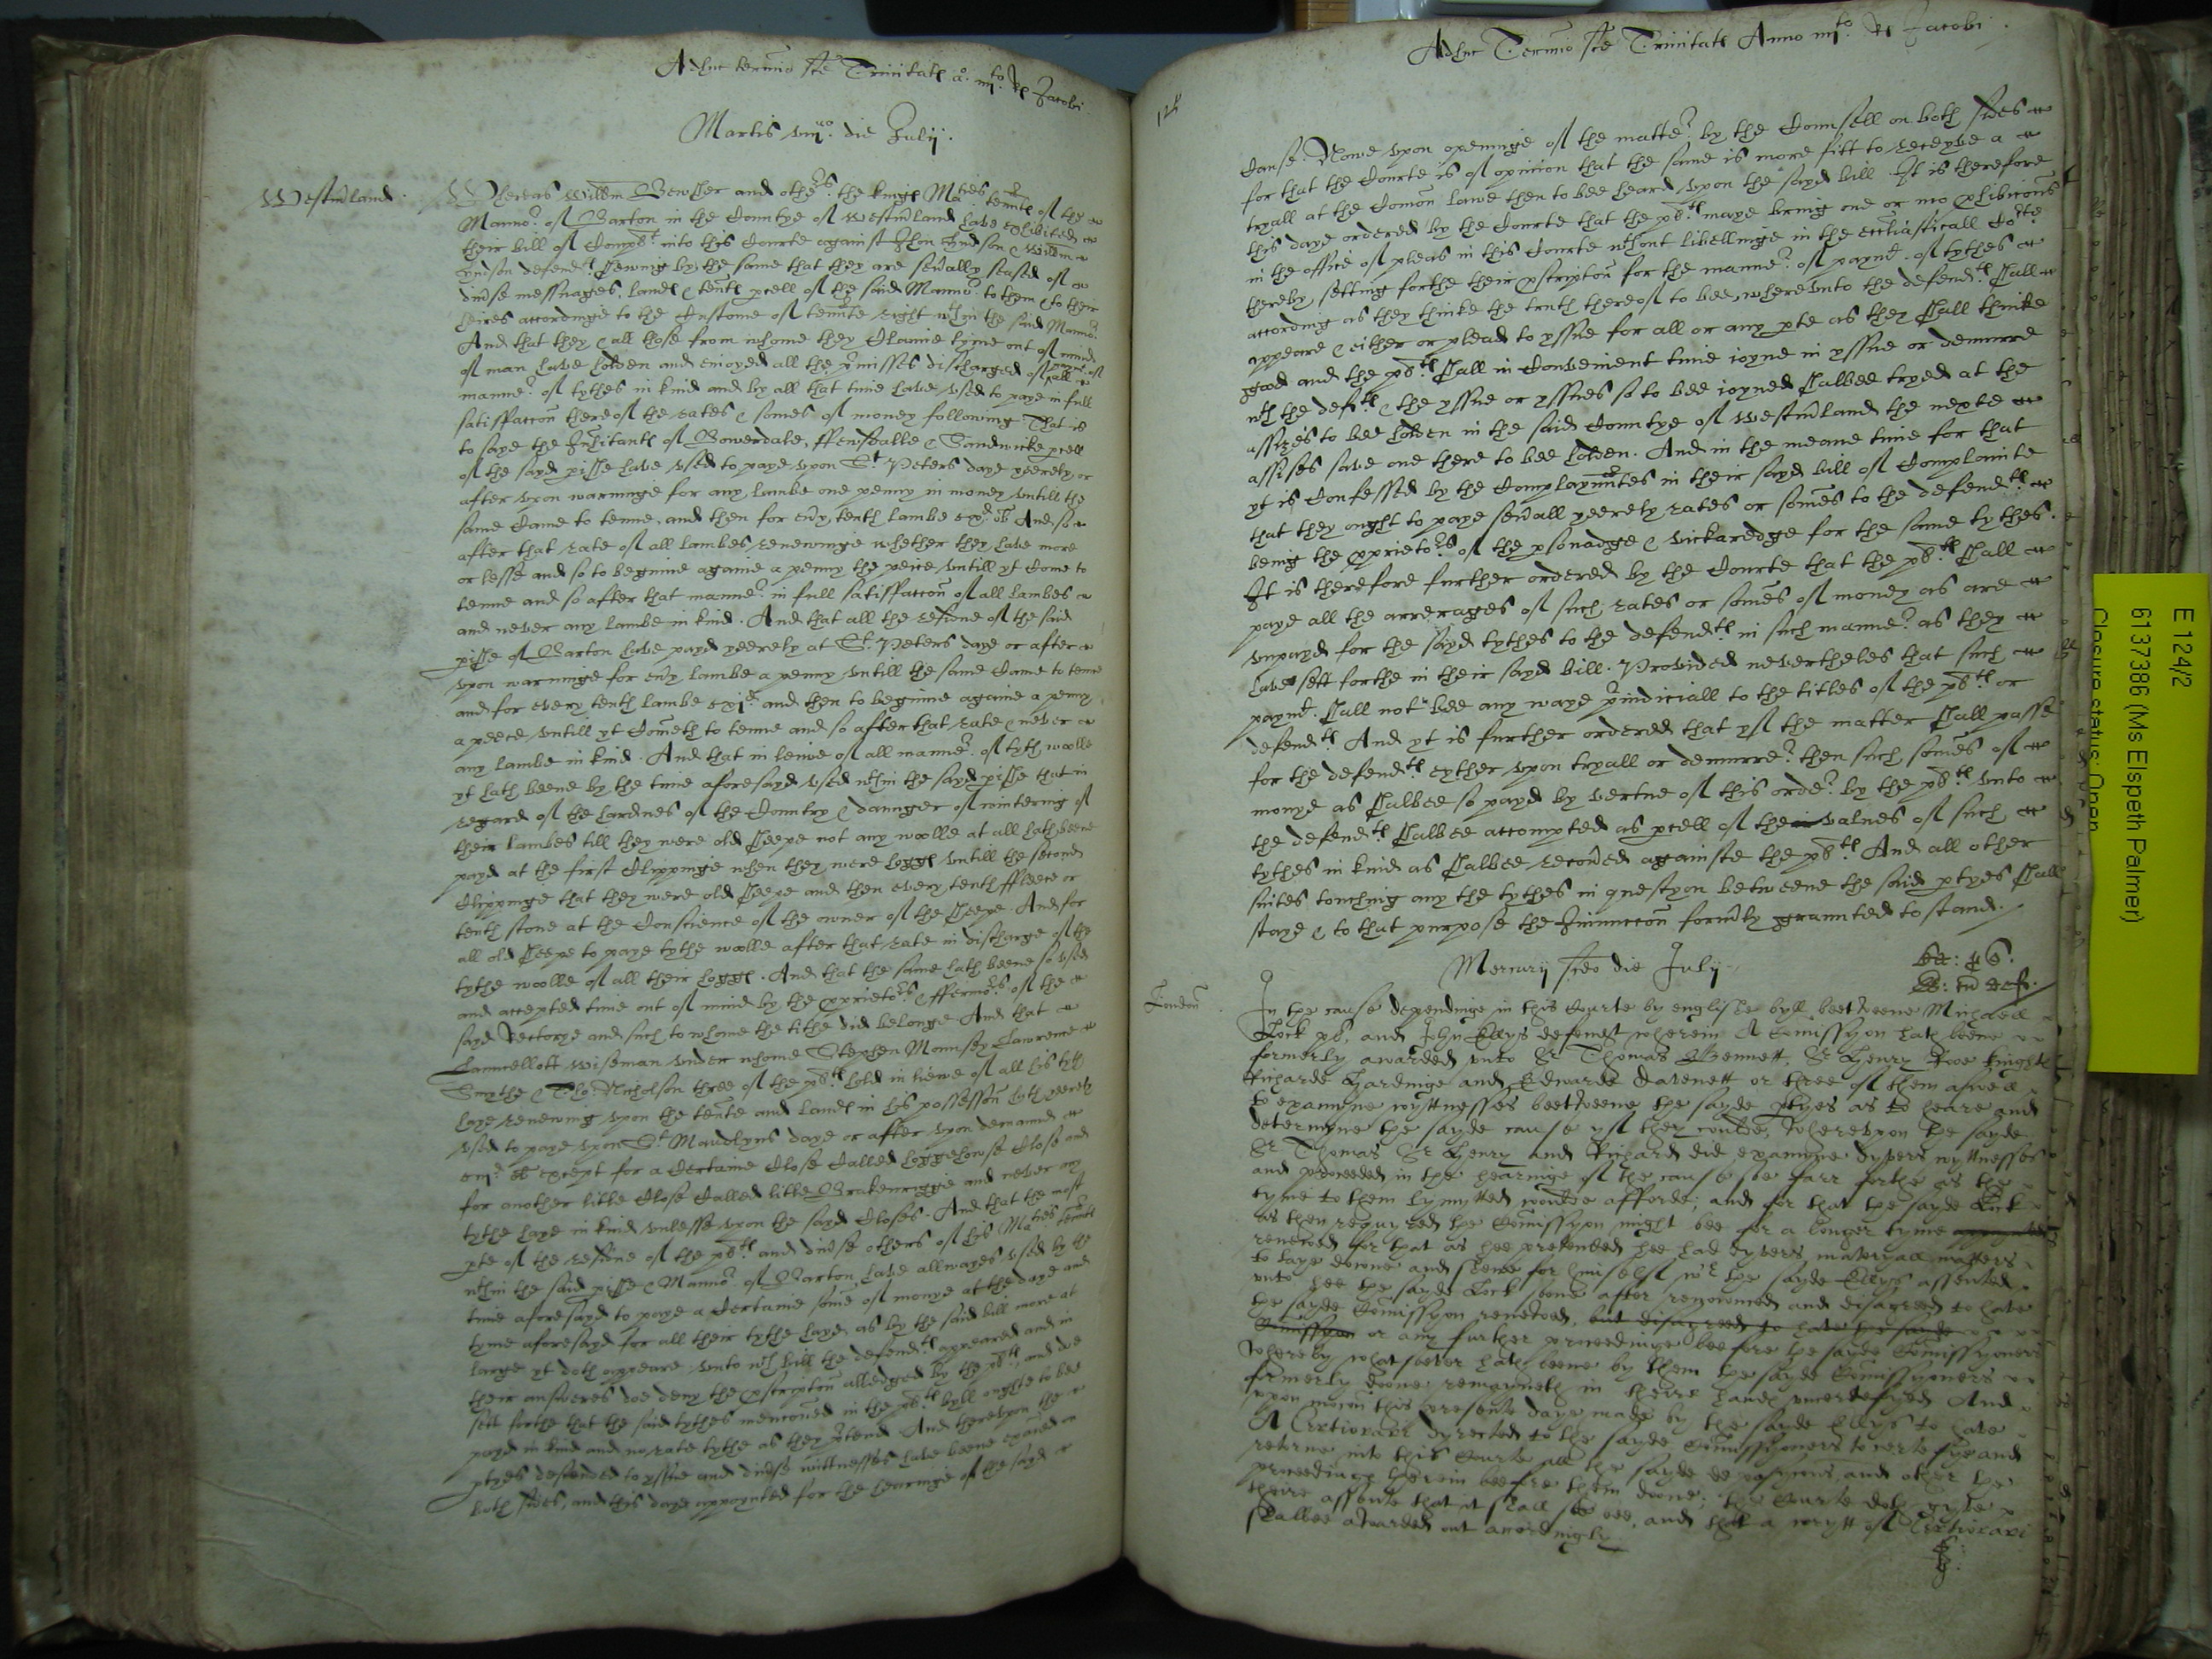 Adhuc termio sce Trinitatis ao. iiijto Rs Jacobi
Martis viijuo. die Julij.
Westmland.
Whereas Willm Bewsher and others the kings Maties tennts of the
Mannor of Barton in the Countye of Westmland have exhibited
their bill of Complt into this Courte against John Hudson & Willm
Hudson defendts shewing by the same that they are sevally seased of
divse messuages, lands & tents pcell of the said Mannor to them & to their
heires accordinge to the Custome of tennte right wthin the said Mannor.
And that they & all those from whome they Clayme tyme out of mind
of man have holden and enioyed all the pmisses discharged of paymt of all
manner of tythes in kind and by all that time have vsed to paye in full
satisfaccon thereof the rates & somes of money following That is
to saye the Inhitants of Bowerdale, & Sandwicke pcell
of the sayd pishe have vsed to paye vpon St Peters daye yeerely, or
after vpon warninge for any lambe one penny in money vntill the
same Came to tenne, and then for evy tenth lambe And so
after that rate of all lambes renewinge whether they have more
or lesse and so to beginne againe a penny the peice vntill yt Come to
tenne and so after that manner in full satisfaccon of all lambes
and never any lambe in kind. And that all the residue of the said
pishe of Barton have payd yeerely at St Peters daye or after
vpon warninge for evy lambe a penny vntill the same Come to tenne
and for every tenth lambe and then to beginne againe a penny
a peece vntill yt Cometh to tenne and so after that rate & never
any lambe in kind. And that in leiue of all manner of tyth wolle
yt hath beene by the time aforesayd vsed wthin the sayd pishe that in
regard of the hardnes of the Countrey & daunger of wintering of
their lambes till they were old sheepe not any wolle at all hath beene
payd at the first Clippinge when they were hoggs vntill the second
Clippinge that they were old sheepe and then every tenth ffleece or
tenth stone at the Conscience of the owner of the sheepe. And for
all old sheepe to paye tythe woolle after that rate in discharge of the
tythe woolle of all their hoggs. And that the same hath beene so vsed
and accepted time out of mind by the pprietors & ffermors of the
sayd Rectorye and such to whome the tithe did belonge And that
Launcellott Wiseman vnder whome Stephen Mounsey Lawrence
Smythe & Tho: Nicholson three of the plts hold in liewe of all his tyth
haye renewing vpon the tente and lands in his possession hath yeerely
vsed to paye vpon St Maudlyns daye or after vpon demaund
except for a Certaine Close Called hoggehouse Close and
for another litle Close Called litle Brakenrigge and never any
tythe haye in kind vnlesse vpon the sayd Closes. And that the most
pte of the residue of the plts and divse others of his Maties tennts
wthin the said pishe & Mannor of Barton have allwayes vsed by the
time aforesayd to paye a Certaine some of monye at the daye and
tyme aforesayd for all their tythe haye as by the said bill more at
large yt doth appeare vnto wch bill the defendts appeared and in
their answeres doe deny the pscripton alledged by the plts, and doe
sett forthe that the said tythes menconed in the plts byll oughte to bee
payd in kind and no rate tythe as they ptend. And therevpon the
ptyes descended to yssue and divse wittnesses have beene exaied on
both sides, and this daye appoynted for the hearinge of the sayd
124
Adhuc Termio sce Trinitats Anno iiijto. Rs Jacobi.
Cause. Nowe vpon openinge of the matter by the Counsell on both sides
for that the Courte is of opinion that the same is more fitt to receyve a
tryall at the Comon lawe then to bee heard vpon the sayd bill. It is therefore
this daye ordered by the Courte that the plts maye bring one or mo phibicions
in the office of pleas in this Courte wthout libellinge in the eccliasticall Corte
thereby setting forthe their pscripton for the manner of paymt. of tythes
according as they thinke the truth thereof to bee, wherevnto the defendts shall
appeare & either or plead to yssue for all or any pte as they shall thinke
good and the plts shall in Convenient time ioyne in yssue or demurre
wth the defts & the yssue or yssues so to bee ioyned shalbee tryed at the
assizes to bee holden in the said Countye of Westmland the nexte
assises save one there to bee holden. And in the meane time for that
yt is Confessed by the Complaynntes in their sayd bill of Complainte
that they ought to paye sevall yeerely rates or somes to the defendts
being the pprietors of the psonadge & vickaredge for the same tythes.
It is therefore further ordered by the Courte that the plts shall
paye all the arrerages of such rates or somes of money as are
vnpayd for the sayd tythes to the defendts in such manner as they
have sett forthe in their sayd bill. Provided neverthelesse that such
paymt. shall not bee any waye piudiciall to the titles of the plts or
defendts And yt is further ordered that yf the matter shall passe
for the defendts eyther vpon tryall or demurrer then such somes of
monye as shalbee so payd by vertue of this order by the plts vnto
the defendts shalbee accompted as pcell of the values of such
tythes in kind as shalbee recoved againste the plts And all other
suites touching any the tythes in questyon betweene the said ptyes shall
staye & to that purpose the Iniunccon formly graunted to stand.
Mercurij scdo die July
London
In the cause dependinge in this Courte by englishe byll beetweene Michaell
Lock plt, and John Ellys defendt wherein A Comissyon hath beene
formerly awarded vnto Sr Thomas Bennett, Sr Henry Rowe knights
Richarde Hardinge and Edwarde or three of them aswell
to examyne wyttnesses beetweene the sayde ptyes as to heare and
determyne the sayde cause yf they coulde, Wherevpon the sayde
Sr Thomas Sr Henry and Richard did examine dyvers wyttnesses
and proceeded in the hearinge of the cause soe farr forthe as the
tyme to them lymytted woulde afforde; and for that the sayde Lock
as then requyred the Comissyon might bee for a longer tyme
renewed for that as hee pretended hee had dyvers materyall matters
to laye downe and shewe for himselfe wch the sayde Ellys assented
vnto hee the sayde Lock soone after renounced and disagreed to have
the sayde Comissyon renewed, but disagreed to have the sayde
Comissyon or any further proceedinge beefore the sayde Comissyoners
Whereby whatsoever hath beene by them the sayde Comissyoners
formerly doone remayneth in theire hands uncertefyed And
vpon mocon this presente daye made by the sayde Ellys to have
A Certiorari dyrected to the sayde Comissyoners to certefye and
returne into this Courte all the sayde deposycons and other the
proceedings therein beefore them doone; the Courte doth gyve
theire assente that it shall soe bee, and that a wrytt of Certiorari
shalbee awarded out accordingly
E 124/2
6137386 (Ms Elspeth Palmer)
Closure status: Open